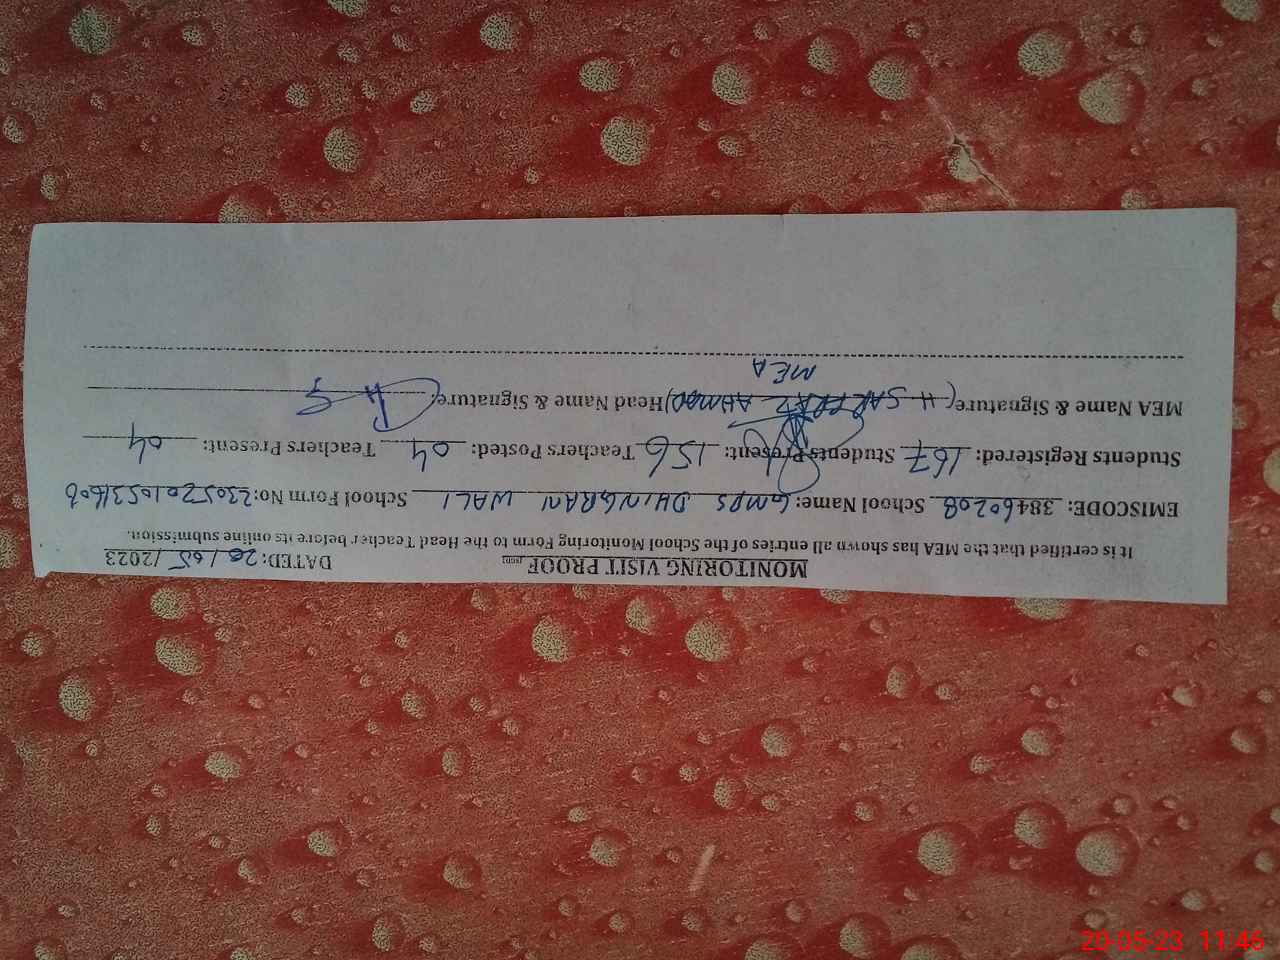 MONITORING VISIT PROOF DATED: 20/05/2023
It is certified that the MEA has shown all entries of the School Monitoring Form to the Head Teacher before its online submission.
EMISCODE: 38460208 School Name: GMPS DHINGRAN WALI School Form No: 
Students Registered: 167 Students Present: 156 Teachers Posted: 04 Teachers Present: 04
MEA Name & Signature (H SARFRAZ AHMAD) Head Name & Signature:
MEA
20-05-23 11:46